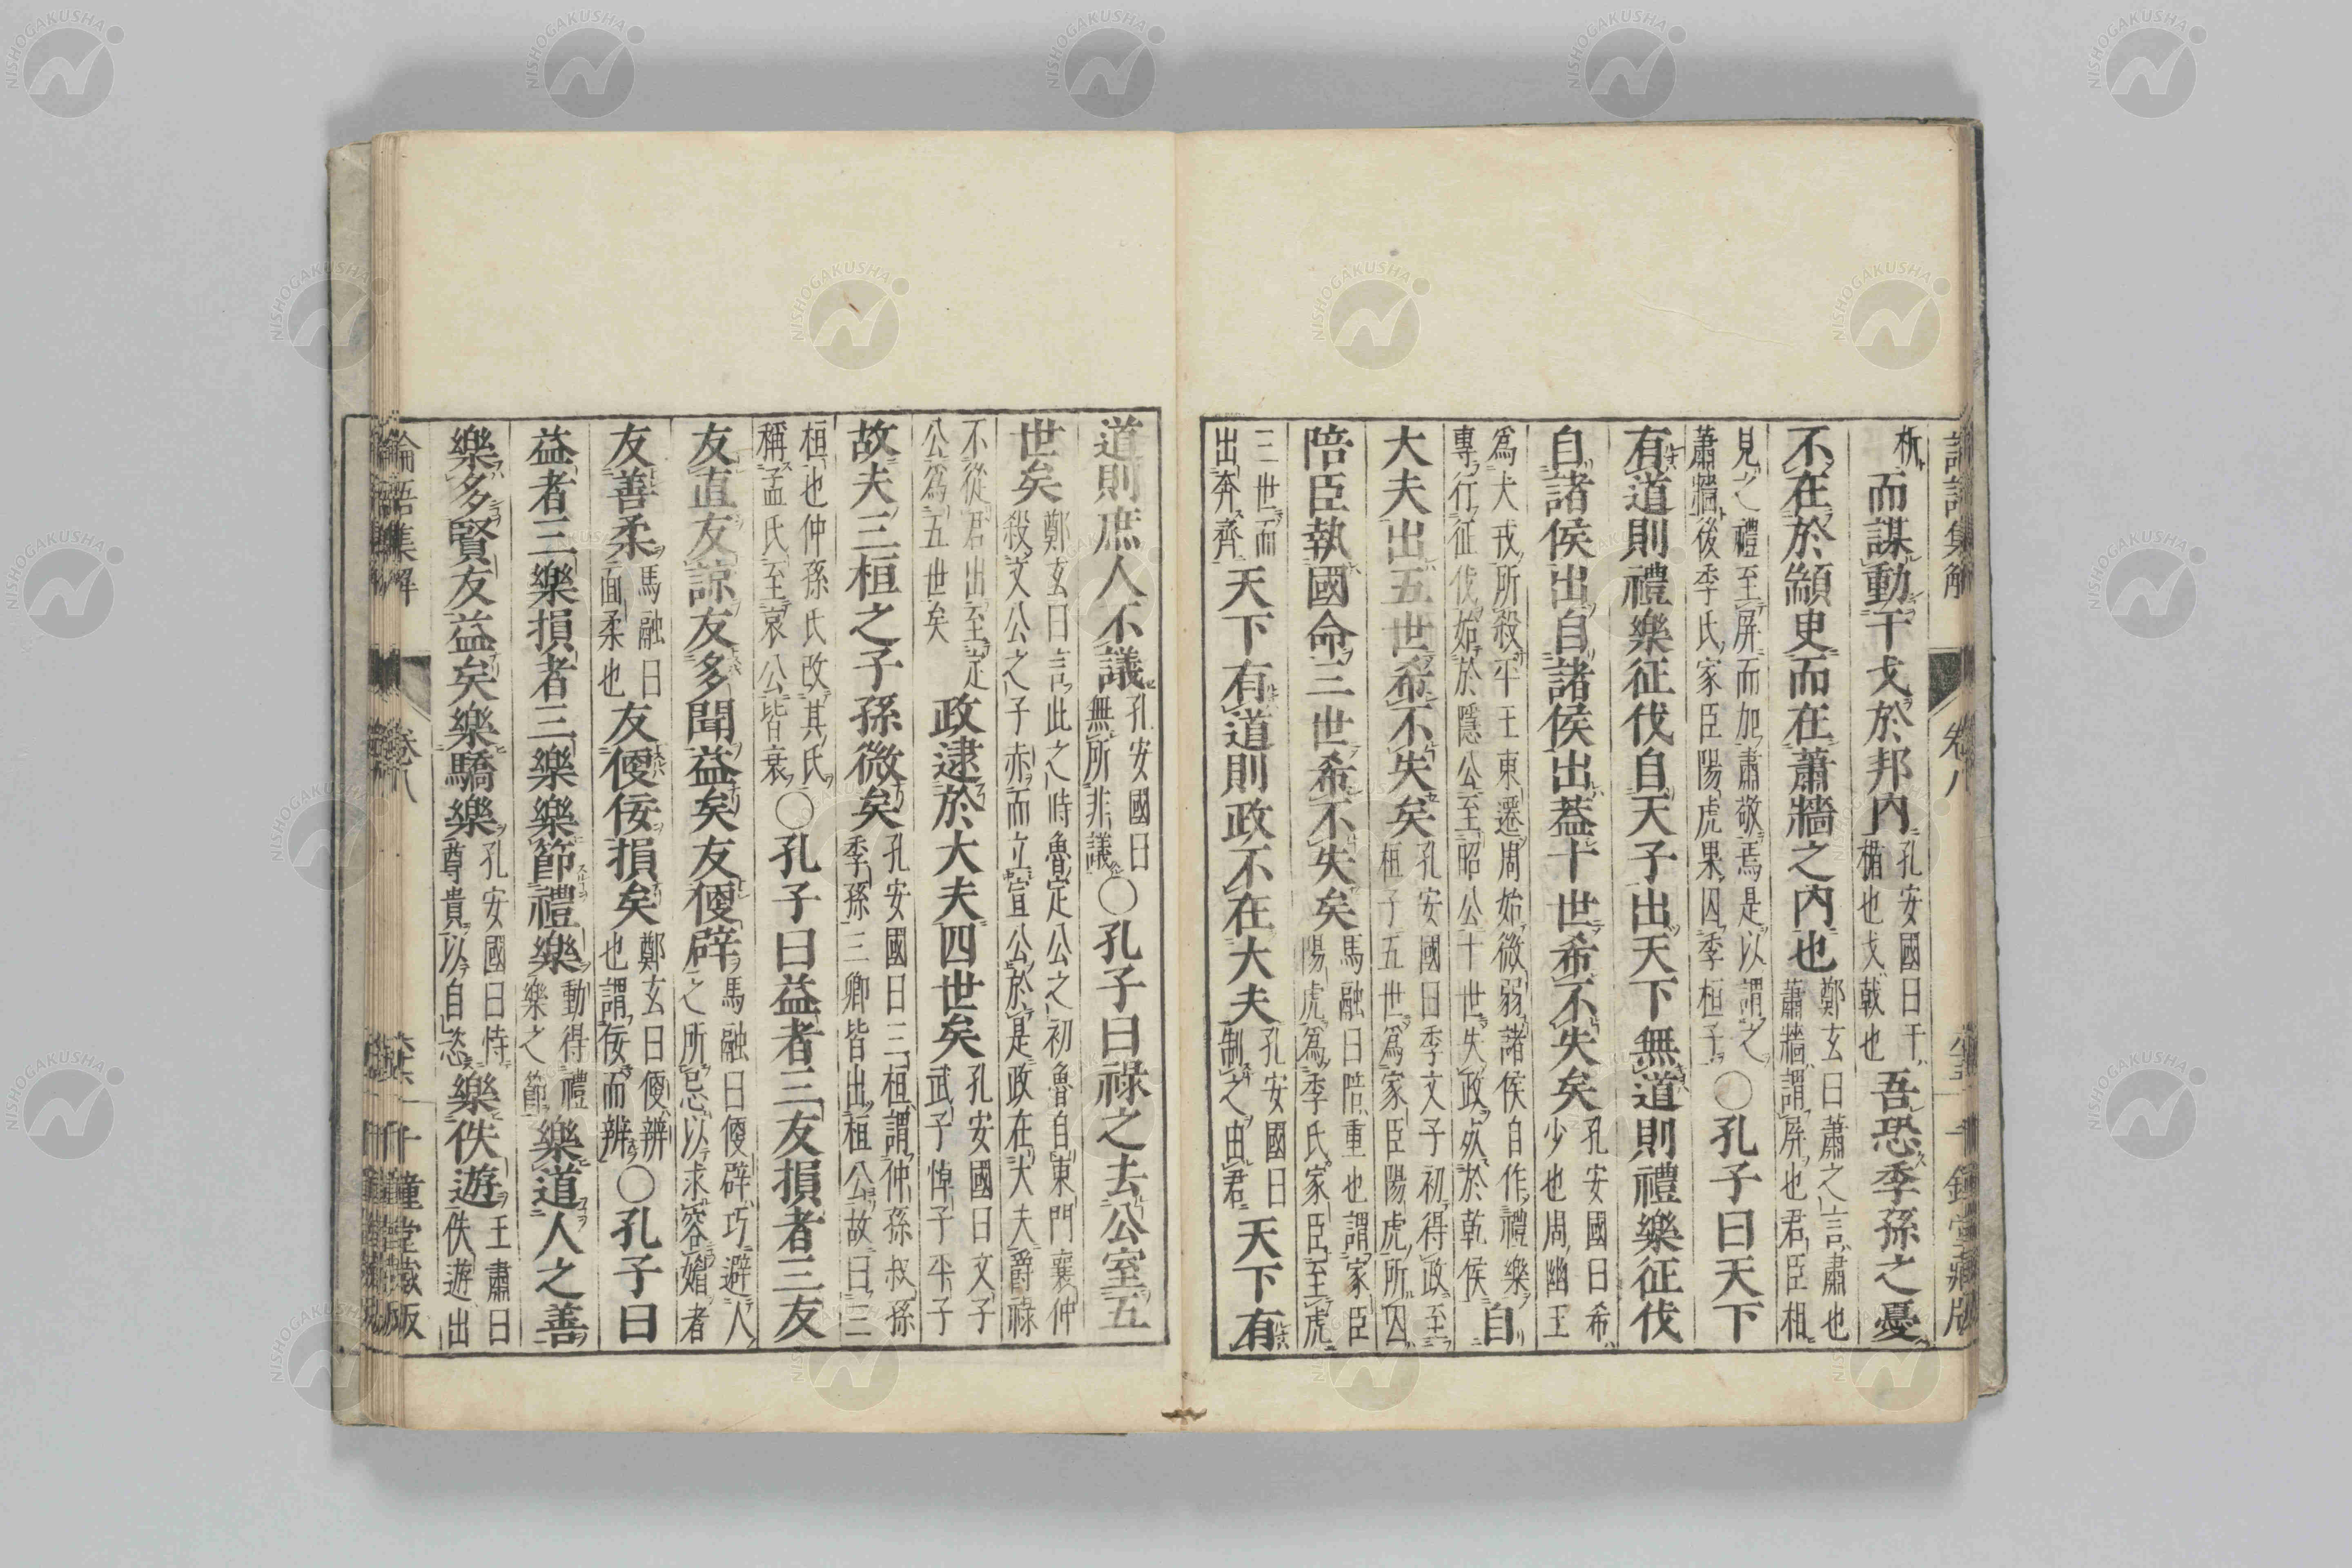 析而謀動干戈於邦內孔安國曰干楯也戈戟也吾恐季孫之憂
不在於顓臾而在蕭牆之內也鄭玄曰蕭之言肅也蕭牆謂屏也君臣相
見之禮至屏而加肅敬焉是以謂之蕭牆後季氏家臣陽虎果囚季桓子○孔子曰天下
有道則禮樂征伐自天子出天下無道則禮樂征伐
自諸侯出自諸侯出蓋十世希不失矣孔安國曰希少也周幽王
爲犬戎所殺平王東遷周始微弱諸侯自作禮樂專行征伐始於隱公至昭公十世失政死於乾侯自
大夫出五世希不失矣孔安國曰季文子初得政至桓子五世爲家臣陽虎所囚
陪臣執國命三世希不失矣馬融曰陪重也謂家臣陽虎爲季氏家臣至虎
三世而出奔齊天下有道則政不在大夫孔安國曰制之由君天下有
道則庶人不議孔安國曰無所非議○孔子曰祿之去公室五
世矣鄭玄曰言此之時魯定公之初魯自東門襄仲殺文公之子赤而立宣公於是政在大夫爵祿
不從君出至定公爲五世矣政逮於大夫四世矣孔安國曰文子武子悼子平子
故夫三桓之子孫微矣孔安國曰三桓謂仲孫叔孫季孫三卿皆出桓公故曰三
桓也仲孫氏改其氏稱孟氏至哀公皆衰○孔子曰益者三友損者三友
友直友諒友多聞益矣友便辟馬融曰便辟巧避人之所忌以求容媚者
友善柔馬融曰面柔也友便佞損矣鄭玄曰便辨也謂佞而辨○孔子曰
益者三樂損者三樂樂節禮樂動得禮樂之節樂道人之善
樂多賢友益矣樂驕樂孔安國曰恃尊貴以自恣樂佚遊王肅曰佚遊出
論語集解 卷八 千鍾堂藏版
NISHOGAKUSHA